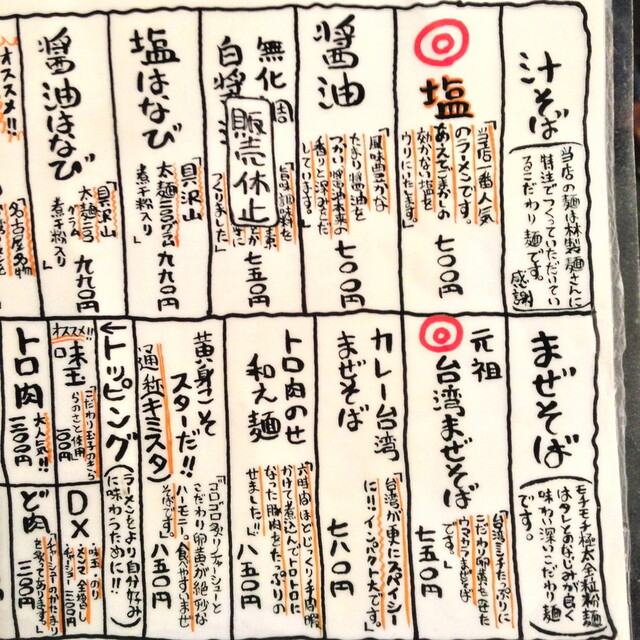 汁そば
当店の麺は林製麺さんに
特注でつくっていただいてい
るこだわり麺です。
感謝
塩
「当店一番人気
のラーメンです。
あえてご主人の
効かない塩を
ウリにいたます」
七〇〇円
醤油
「風味豊かな
たまり醤油を
つかい醤油本来の
香りと深みをだ
しています。」
七〇〇円
無化周
白醤
販売休止
「旨味調味料を
つくりました」
七五〇円
塩はなび
「具沢山
太麺三〇〇グラム
煮干粉入り」
九九〇円
醤油はなび
「具沢山
太麺三〇〇
グラム
煮干粉入り」
九九〇円
オススメ!!
名古屋名物
まぜそば
モチモチ極太全粒粉麺
はタレとあなじみが良く
味わい深いこだわり麺
です。
元祖
台湾まぜそば
「台湾ミンチたっぷりに
こだわり卵黄を乗せた
ウマカラまぜそば
です。」
七五〇円
カレー台湾
まぜそば
「台湾が更にスパイシー
に!!インパクト大です。」
七八〇円
トロ肉のせ
和え麺
「六時間ほどじっくり手間暇
かけて煮込んでトロトロに
なった豚肉をたっぷりの
せました!!」
八五〇円
黄身こそ
スターだ!!
(通称キミスタ)
「ゴロゴロ炙りチャーシューと
こだわり卵黄が絶妙な
ハーモニー。食べやすいまぜ
そばです。」
八五〇円
←トッピング
(ラーメンをより自分好み
に味わうために!!)
オススメ!!
味玉
「こだわり玉子のきら
らのさと使用」
一〇〇円
トロ肉
大人気!!
三〇〇円
DX
・味玉・のり
・メンマ・金増し
チャーシュー
三〇〇円
ど肉
「チャーシューのかたまり
を炙ってあります。」
三〇〇円